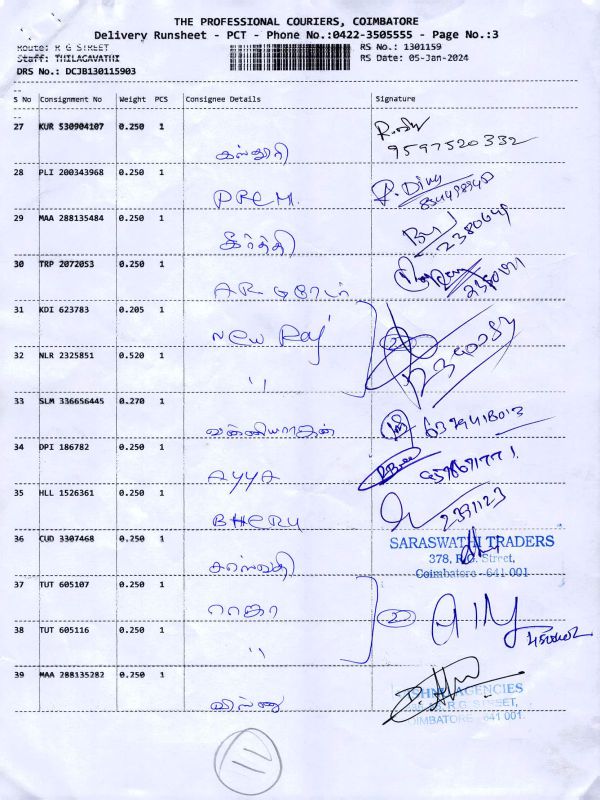 THE PROFESSIONAL COURIERS, COIMBATORE
Delivery Runsheet - PCT - Phone No.:0422-3505555 - Page No.:3
Route: R G STREET
RS No.: 1301159
Staff: THILAGAVATHI
RS Date: 05-Jan-2024
DRS No.: DCJB130115903
S No Consignment No Weight PCS Consignee Details Signature
27 KUR 530904107 0.250 1
கஸ்தூரி 9597520332
28 PLI 200343968 0.250 1
PREM.
29 MAA 288135484 0.250 1
கீர்த்தி 2380649
30 TRP 2072053 0.250 1
AR
31 KDI 623783 0.205 1
New Raj 2
32 NLR 2325851 0.520 1
"
33 SLM 336656445 0.270 1
34 DPI 186782 0.250 1
AYYA
35 HLL 1526361 0.250 1
BHERU 2371123
36 CUD 3307468 0.250 1
SARASWATHI TRADERS
378, R.G. Street,
Coimbatore - 641 001
சரஸ்வதி
37 TUT 605107 0.250 1
ராஜா 2
38 TUT 605116 0.250 1
"
39 MAA 288135282 0.250 1
AGENCIES
R.G. STREET,
COIMBATORE - 641 001
விஷ்ணு
11